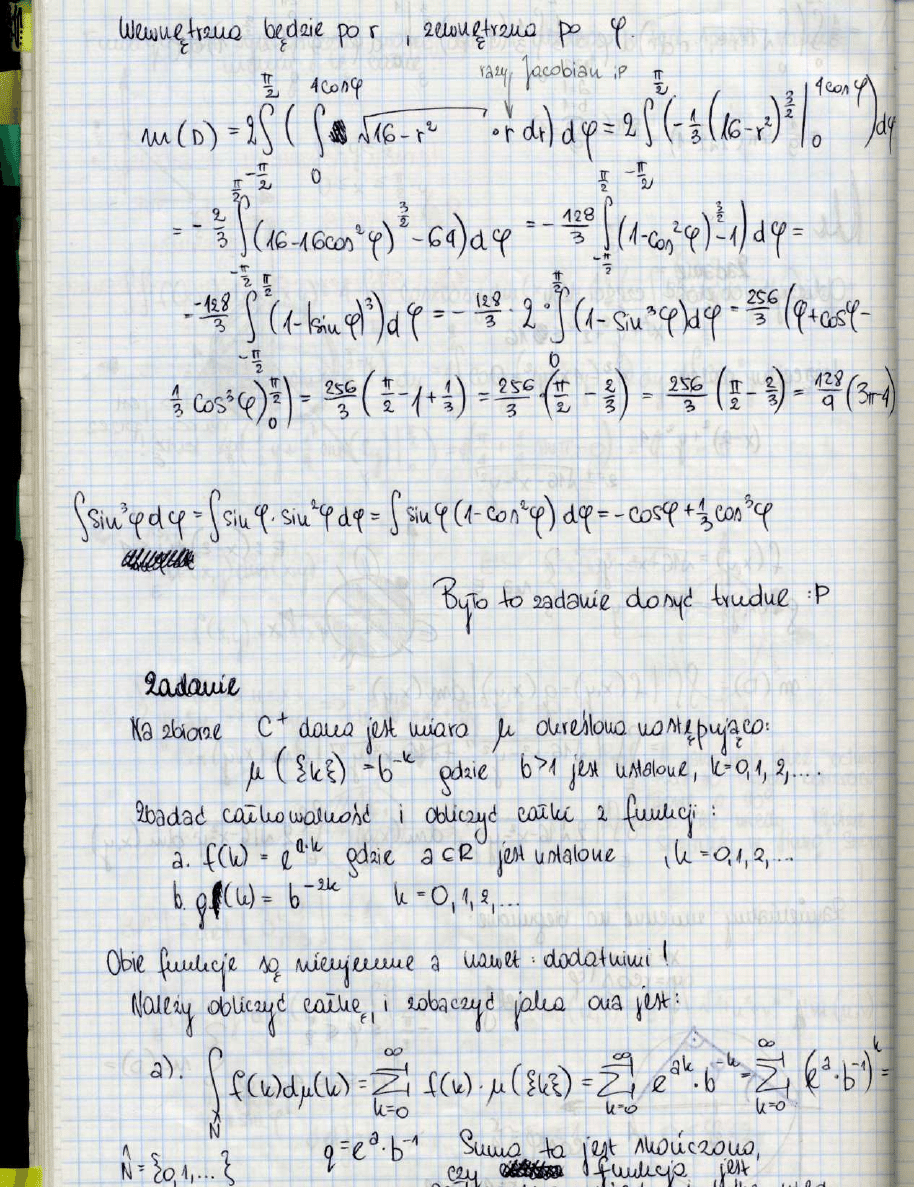 Wewnętrzna będzie po r , zewnętrzna po φ.
razy Jacobian :P
m(D) = 2∫_{-π/2}^{π/2} ( ∫_0^{4cosφ} √(16-r²) · r dr) dφ = 2∫_{-π/2}^{π/2} (-1/3 (16-r²)^{3/2} |_0^{4cosφ}) dφ
= -2/3 ∫_{-π/2}^{π/2} ((16-16cos²φ)^{3/2} - 64) dφ = -128/3 ∫_{-π/2}^{π/2} ((1-cos²φ)^{3/2} - 1) dφ =
= -128/3 ∫_{-π/2}^{π/2} (1-|sinφ|³) dφ = -128/3 · 2 · ∫_0^{π/2} (1-sin³φ) dφ = 256/3 (φ+cosφ-
1/3 cos³φ)_0^{π/2}) = 256/3 (π/2 - 1 + 1/3) = 256/3 · (π/2 - 2/3) = 256/3 (π/2 - 2/3) = 128/9 (3π-4)
∫sin³φ dφ = ∫sinφ · sin²φ dφ = ∫sinφ (1-cos²φ) dφ = -cosφ + 1/3 cos³φ
Było to zadanie dosyć trudne :P
Zadanie
Na zbiorze C⁺ dana jest miara μ określona następująco:
μ ({k}) = b^{-k} gdzie b>1 jest ustalone, k=0,1,2,....
Zbadać całkowalność i obliczyć całki z funkcji :
a. f(k) = e^{a·k} gdzie a∈R jest ustalone , k=0,1,2,...
b. g(k) = b^{-2k} k=0,1,2,...
Obie funkcje są nieujemne a nawet : dodatnimi !
Należy obliczyć całkę, i zobaczyć jaka ona jest:
a). ∫_N̂ f(k)dμ(k) = Σ_{k=0}^∞ f(k) · μ({k}) = Σ_{k=0}^∞ e^{ak} · b^{-k} = Σ_{k=0}^∞ (e^a · b^{-1})^k =
N̂ = {0,1,...} q = e^a · b^{-1} Suma ta jest skończona,
czy funkcja jest